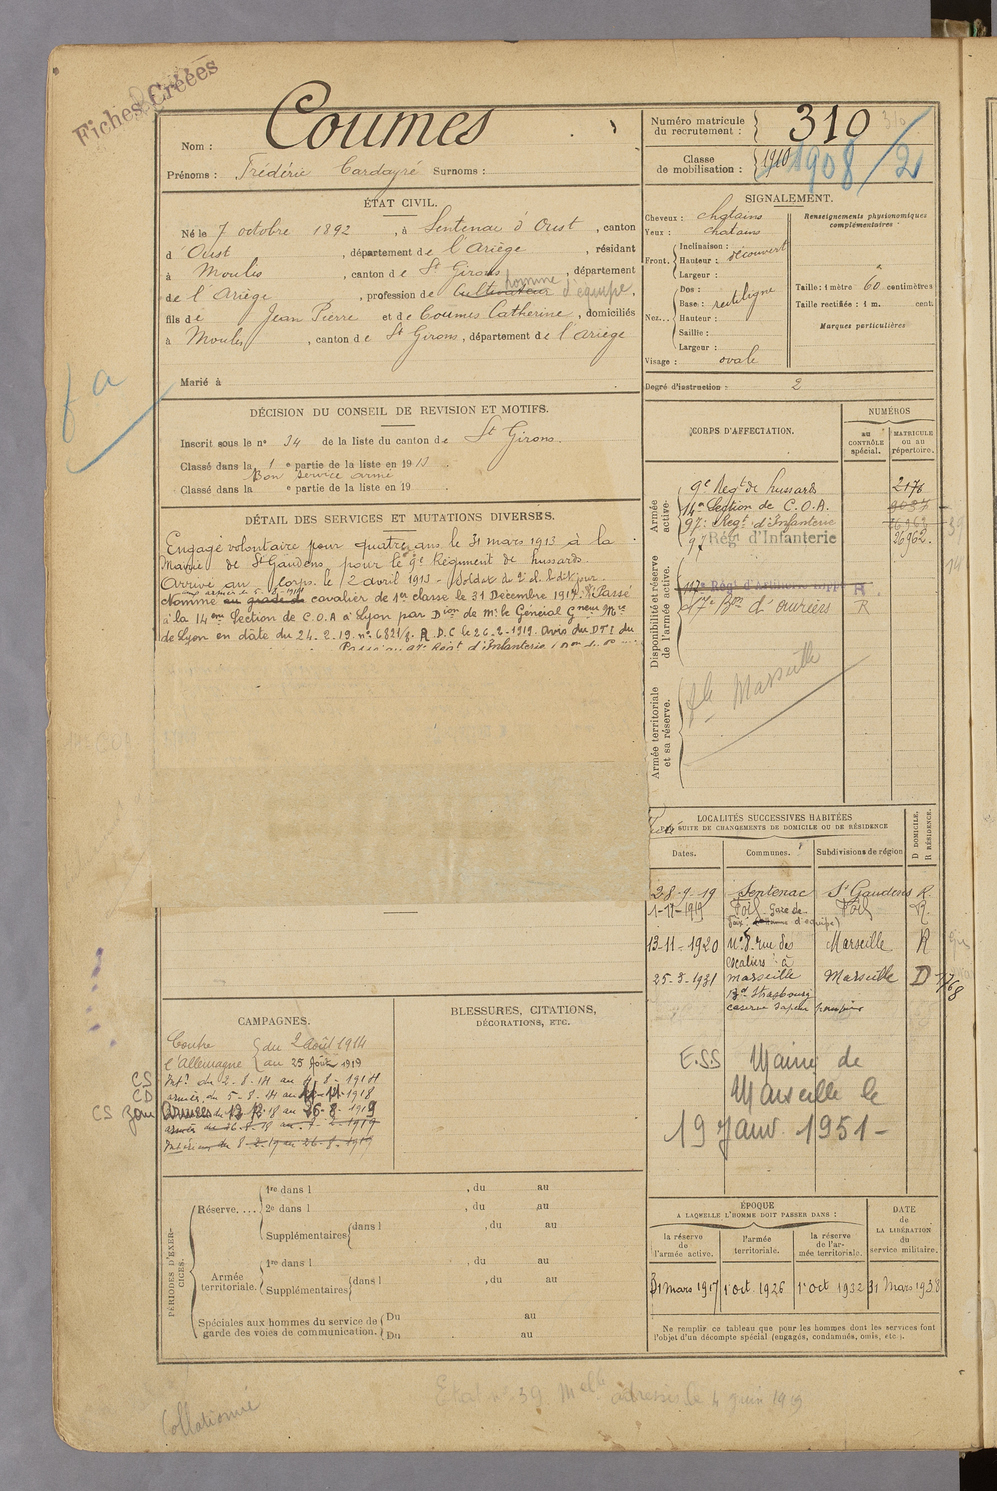 Fiches Créées
Nom : Coumes
Prénoms : Frédéric Cardayré Surnoms :
Numéro matricule du recrutement : 310
Classe de mobilisation : 1910 1908/2
ÉTAT CIVIL.
Né le 7 octobre 1892, à Sentenac d'Oust, canton
d'Oust, département de l'Ariège, résidant
à Moulis, canton de St Girons, département
de l'Ariège, profession de cultivateur homme d'équipe,
fils de Jean Pierre et de Coumes Catherine, domiciliés
à Moulis, canton de St Girons, département de l'Ariège
Marié à
fa
SIGNALEMENT.
Cheveux : chatains
Yeux : chatains
Front. Inclinaison :
Hauteur : découvert
Largeur :
Nez... Dos :
Base : rectiligne
Hauteur :
Saillie :
Largeur :
Visage : ovale
Renseignements physionomiques complémentaires
Taille : 1 mètre 60 centimètres
Taille rectifiée : 1 m. cent.
Marques particulières
Degré d'instruction : 2
DÉCISION DU CONSEIL DE REVISION ET MOTIFS.
Inscrit sous le n° 34 de la liste du canton de St Girons.
Classé dans la 1 e partie de la liste en 1913
Bon service armé
Classé dans la e partie de la liste en 19
DÉTAIL DES SERVICES ET MUTATIONS DIVERSES.
Engagé volontaire pour quatre ans le 31 mars 1913 à la
Mairie de St Gaudens pour le 9e Régiment de hussards.
Arrivé au corps le 2 avril 1913 - Soldat de 2e cl. le dit jour
Nommé au grade de cavalier de 1re classe le 31 Décembre 1914. Classé
à la 14eme Section de C.O.A à Lyon par Don de Mr le Général Gneur Mre
de Lyon en date du 24-2-19. n° 6821/8. R.D.C le 26-2-1919. Avis du DTI du
Passé au 97e Régt d'Infanterie
CORPS D'AFFECTATION.
NUMÉROS
AU CONTRÔLE spécial.
MATRICULE OU AU répertoire.
Armée active.
9e Regt de hussards 2176
14e Section de C.O.A. 9037
97e Regt d'Infanterie
97 Régt d'Infanterie 26962.
Disponibilité et réserve de l'armée active.
117e Régt d'Artillerie R
d 17e Bon d'ouvriers R
Armée territoriale et sa réserve.
Marseille
LOCALITÉS SUCCESSIVES HABITÉES
PAR SUITE DE CHANGEMENTS DE DOMICILE OU DE RÉSIDENCE
Dates. Communes. Subdivisions de région D DOMICILE. R RÉSIDENCE.
28-9-19 Sentenac St Gaudens R.
1-11-1919 Foix Gare de Foix (homme d'équipe) Foix R.
13-11-1920 N° 8 rue des escaliers à Marseille R
25-3-1931 Marseille Marseille D
Bd Strasbourg
caserne sapeur pompier
E.SS Mairie de
Marseille le
19 Janv. 1951-
CAMPAGNES.
Contre du 2 août 1914
l'Allemagne au 25 août 1919
CS Intr du 2-8-14 au 4-8-1914
CD armées du 5-8-14 au 11-11-1918
CS Zone Armées du 12-12-18 au 25-8-1919
armée du 26-8-18 au 7-2-1919
Intérieur du 8-2-19 au 26-8-1919
BLESSURES, CITATIONS,
DÉCORATIONS, ETC.
PÉRIODES D'EXERCICES.
Réserve.... 1re dans l , du au
2e dans l , du au
Supplémentaires dans l , du au
Armée territoriale. 1re dans l , du au
Supplémentaires dans l , du au
Spéciales aux hommes du service de garde des voies de communication. Du au
Du au
ÉPOQUE
A LAQUELLE L'HOMME DOIT PASSER DANS :
la réserve de l'armée active.
l'armée territoriale.
la réserve de l'armée territoriale.
DATE de LA LIBÉRATION du service militaire.
31 mars 1917
1er oct 1926
1er oct 1932
31 Mars 1938
Ne remplir ce tableau que pour les hommes dont les services font
l'objet d'un décompte spécial (engagés, condamnés, omis, etc.).
Etat n° 39 Melle adressé le 4 juin 1919
Collationné